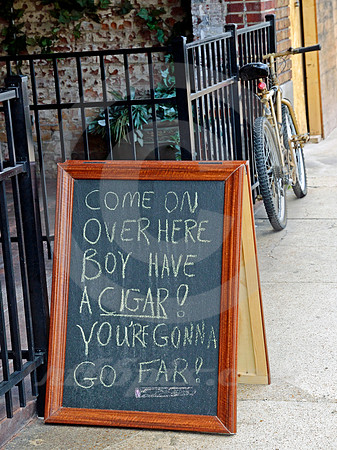 COME ON
OVER HERE
BOY HAVE
A CIGAR!
YOU'RE GONNA
GO FAR!